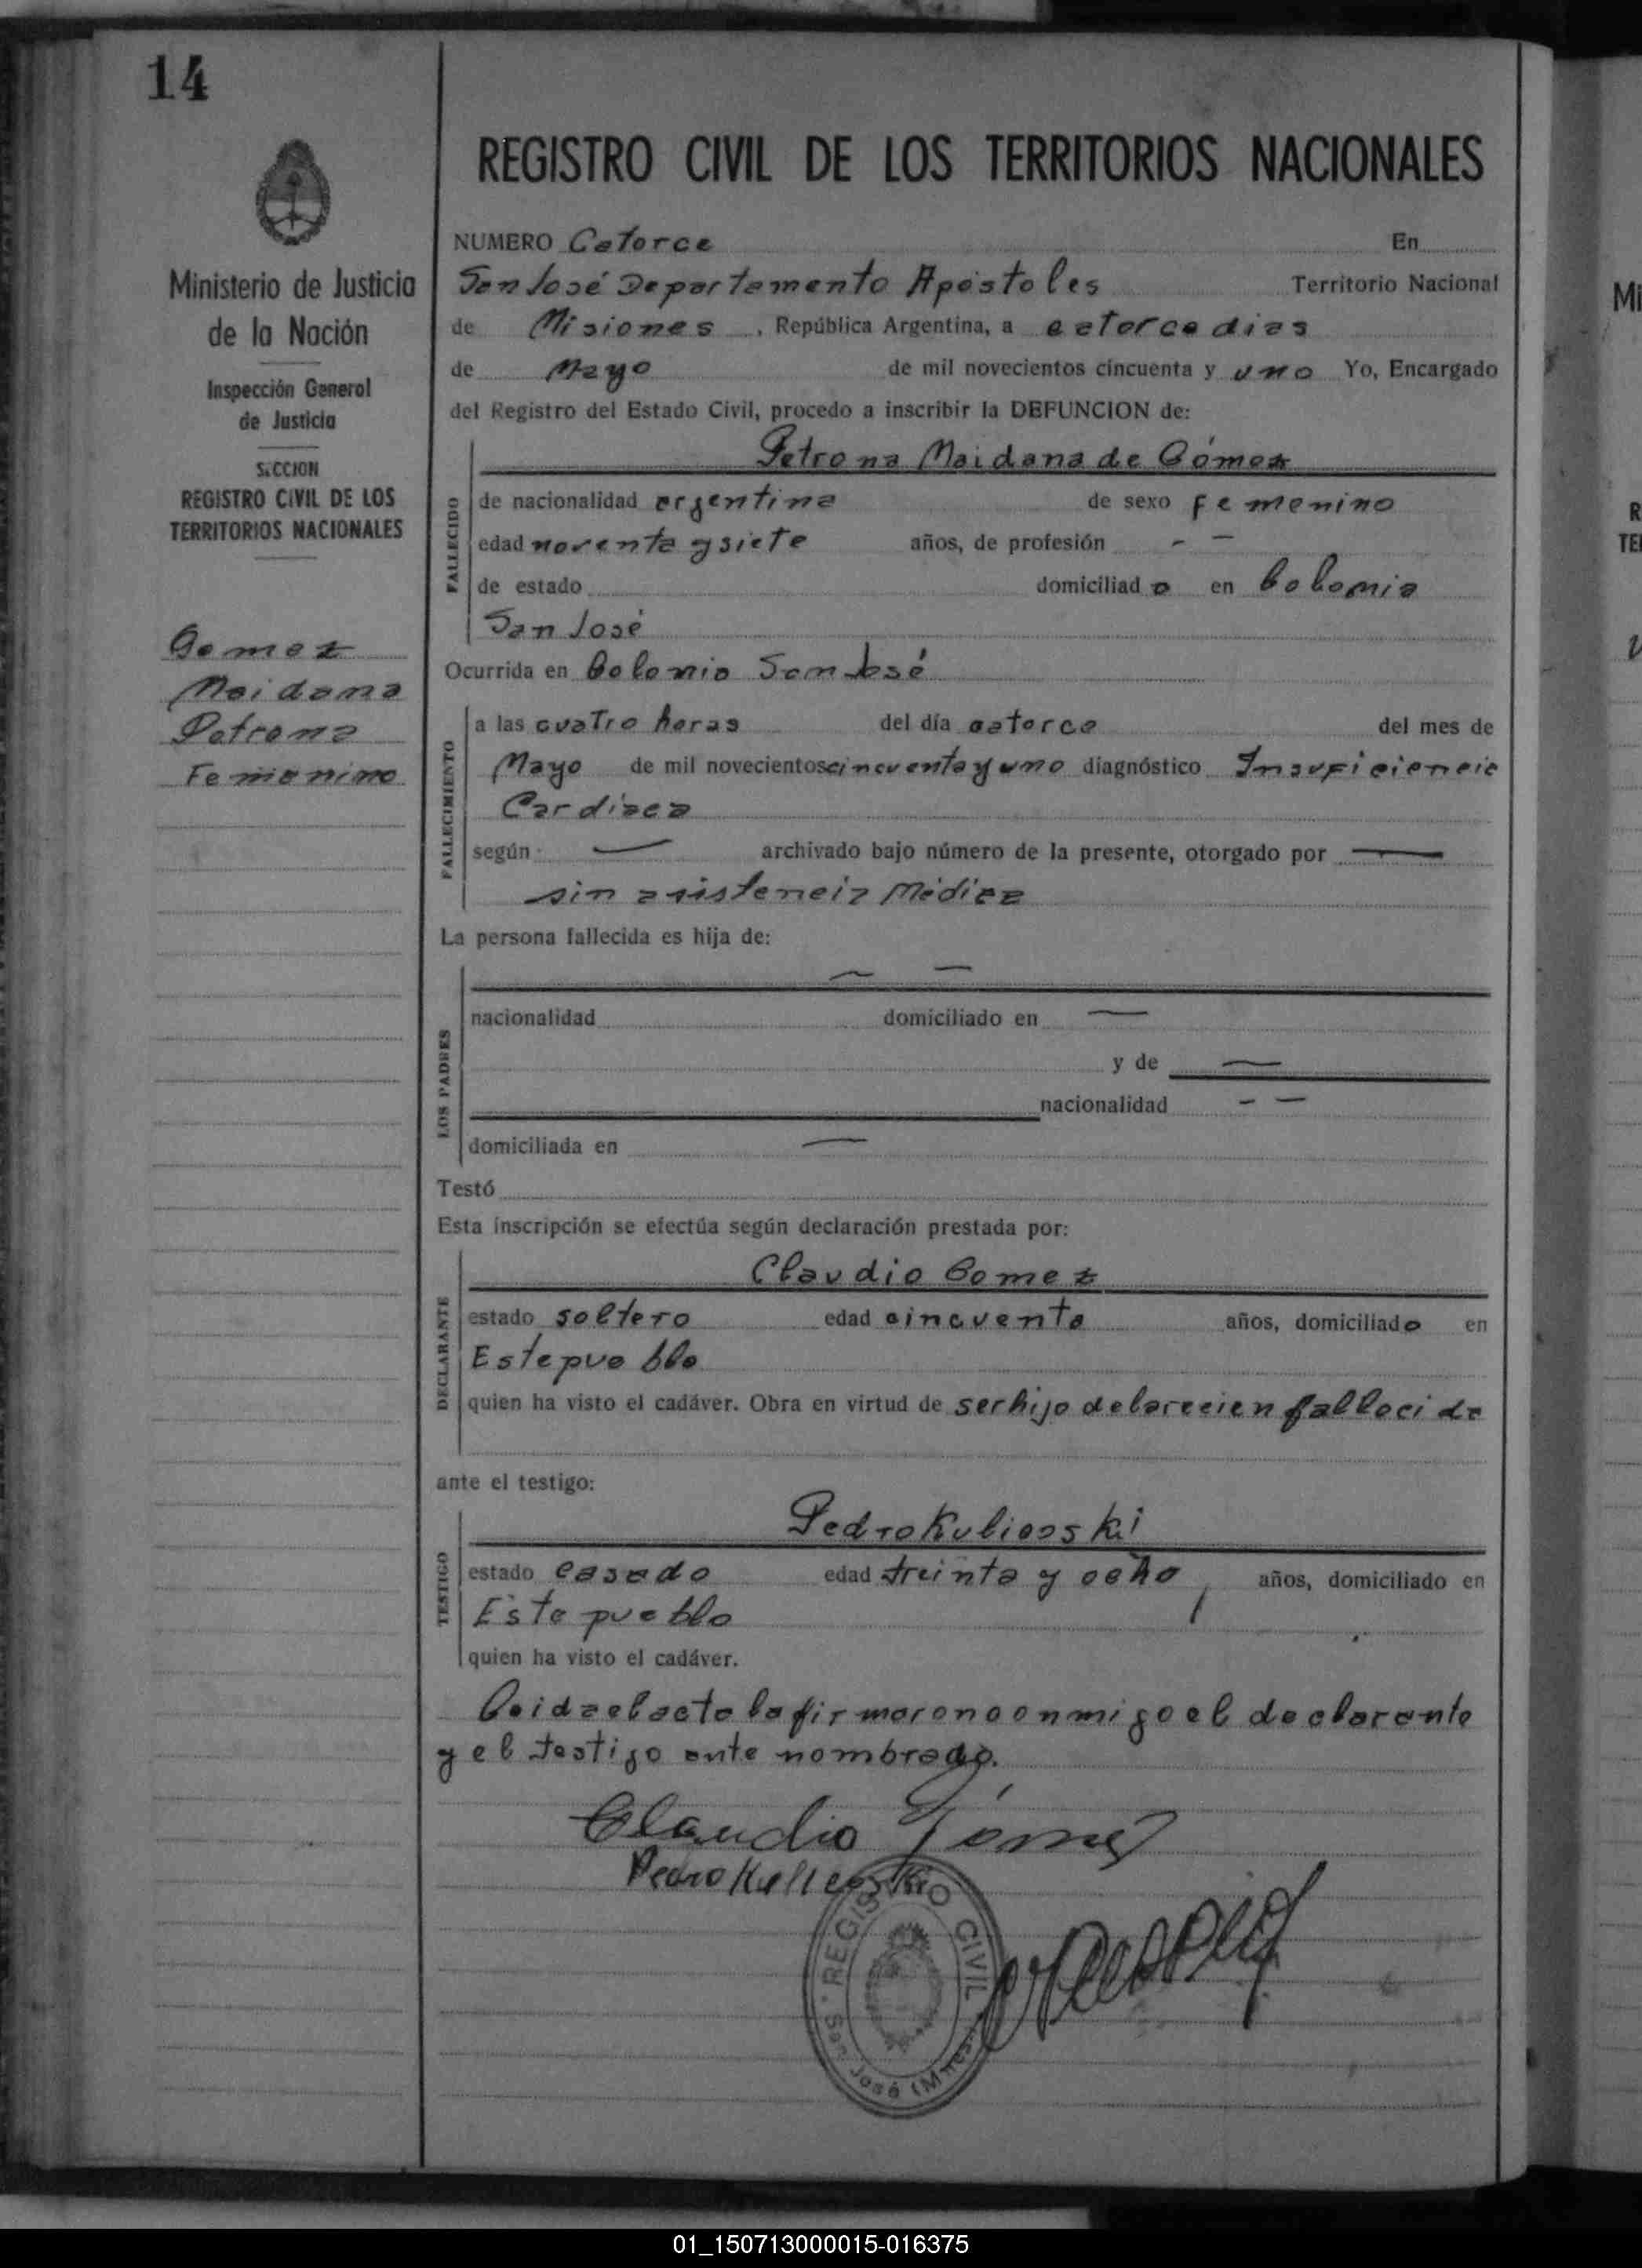 14
Ministerio de Justicia
de la Nación
Inspección General
de Justicia
SECCION
REGISTRO CIVIL DE LOS
TERRITORIOS NACIONALES
Gomez
Maidana
Petrona
Femenino
REGISTRO CIVIL DE LOS TERRITORIOS NACIONALES
NUMERO Catorce En
San José Departamento Apóstoles Territorio Nacional
de Misiones, República Argentina, a catorce dias
de Mayo de mil novecientos cincuenta y uno Yo, Encargado
del Registro del Estado Civil, procedo a inscribir la DEFUNCION de:
Petrona Maidana de Gómez
FALLECIDO
de nacionalidad argentina de sexo femenino
edad noventa y siete años, de profesión - -
de estado domiciliado en Colonia
San José
Ocurrida en Colonia San José
FALLECIMIENTO
a las cuatro horas del día catorce del mes de
Mayo de mil novecientos cincuenta y uno diagnóstico Insuficiencia
Cardiaca
según — archivado bajo número de la presente, otorgado por —
sin asistencia Médica
La persona fallecida es hija de:
— —
LOS PADRES
nacionalidad domiciliado en —
y de —
nacionalidad - -
domiciliada en —
Testó
Esta inscripción se efectúa según declaración prestada por:
Claudio Gomez
DECLARANTE
estado soltero edad cincuenta años, domiciliado en
Este pueblo
quien ha visto el cadáver. Obra en virtud de ser hijo de la recien fallecida
ante el testigo:
Pedro Kulicoski
TESTIGO
estado casado edad treinta y ocho años, domiciliado en
Este pueblo
quien ha visto el cadáver.
Leida el acta la firmaron conmigo el declarante
y el testigo ante nombrado.
Claudio Gómez
Pedro
REGISTRO CIVIL
San José (Mnes.)
Mi
R
TE
01_150713000015-016375